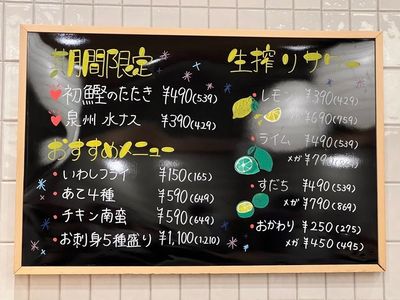 期間限定
初鰹のたたき ¥490(539)
泉州 水ナス ¥390(429)
おすすめメニュー
・いわしフライ ¥150(165)
・あて4種 ¥590(649)
・チキン南蛮 ¥590(649)
・お刺身5種盛り ¥1,100(1,210)
生搾りサワー
・レモン ¥390(429)
¥690(759)
・ライム ¥490(539)
メガ ¥790
・すだち ¥490(539)
メガ ¥790(869)
・おかわり ¥250(275)
メガ ¥450(495)